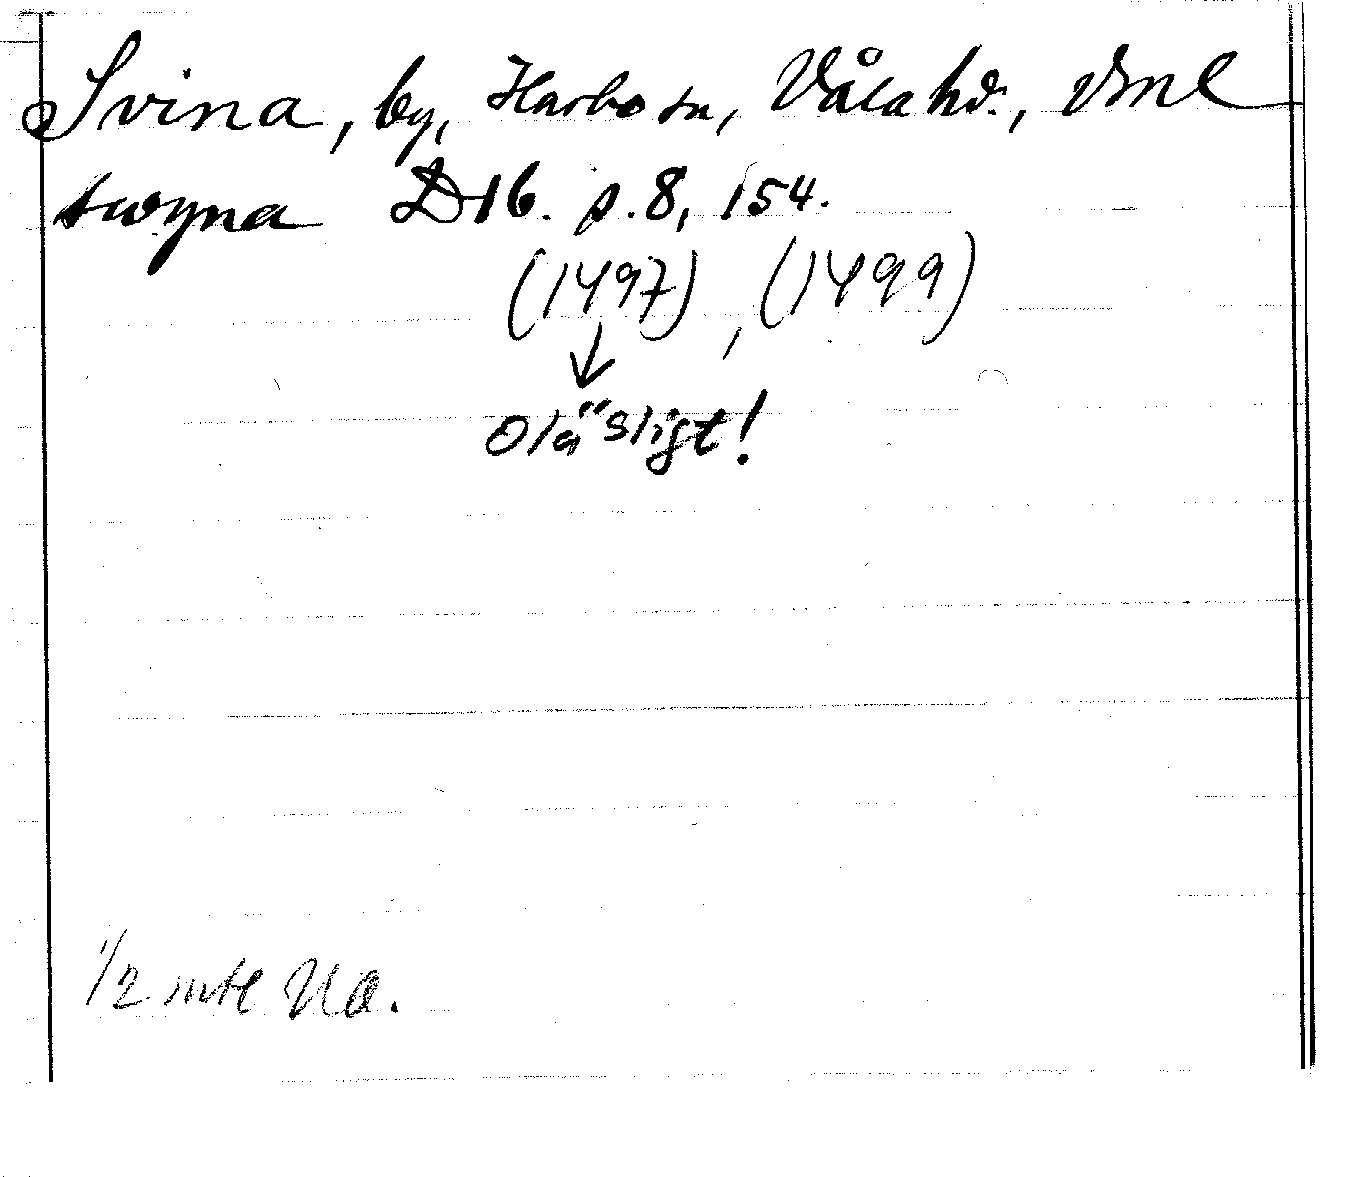 Svina, by, Harbo sn, Våla hd., Vml
swyna D16. p.8, 154.
(1497), (1499)
↓
Oläsligt!
1/2 mtl Ua.